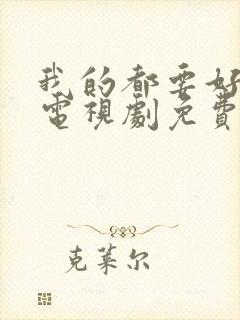 我的都要好
電視劇免費
克莱尔